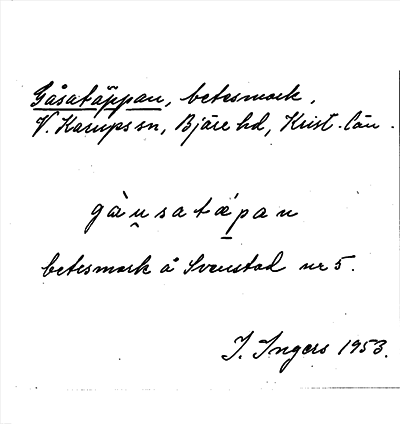 Gåsatäppan, betesmark,
V. Karups sn, Bjäre hd, Krist. län.
gàu̯satæ̀pan
betesmark å Svenstad nr 5.
I. Ingers 1953.